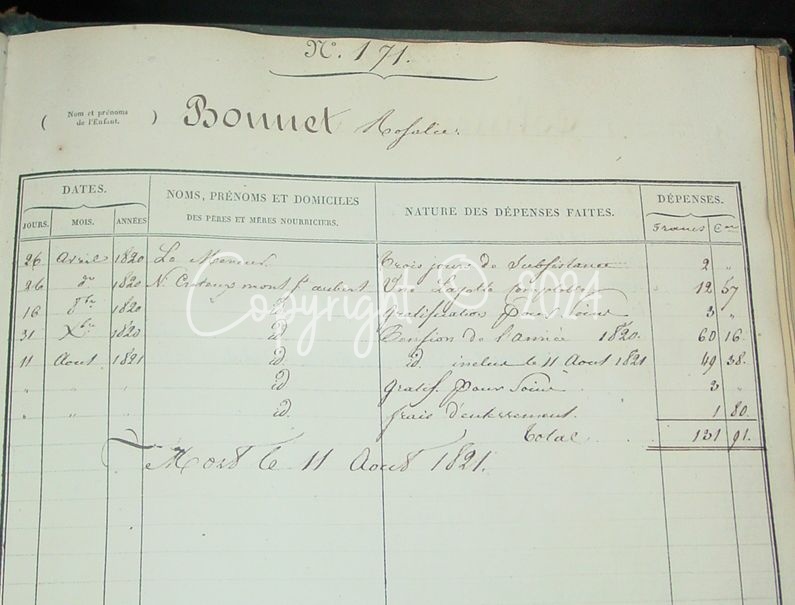 N.º 171.
( Nom et prénoms de l'Enfant. ) Bonnet Rosalie.
DATES. NOMS, PRÉNOMS ET DOMICILES DES PÈRES ET MÈRES NOURRICIERS. NATURE DES DÉPENSES FAITES. DÉPENSES.
JOURS. MOIS. ANNÉES Francs Cen
26 Avril 1820 Le Meneur. Trois jours de Subsistance 2 "
26 do 1820 mont St aubert Une Layette complette 12 57
16 8bre 1820 id Gratification pour soins 3 "
31 Xbre 1820 id Pension de l'année 1820. 60 16
11 Aout 1821 id id. inclus le 11 Aout 1821 49 38.
" " " id gratif. pour soins 3 "
" " " id. frais d'enterrement. 1 80.
Total 131 91.
Mort le 11 Aout 1821.
Copyright © 2024